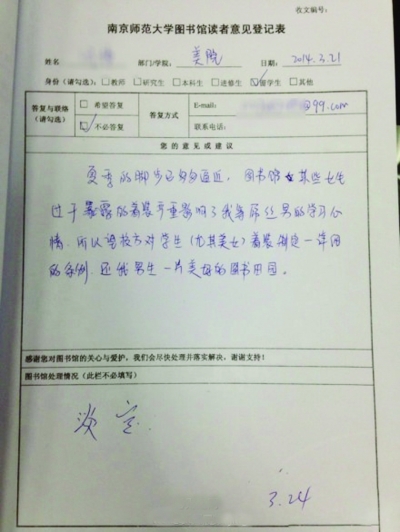 收文编号:
南京师范大学图书馆读者意见登记表
姓名 部门/学院: 美院 日期: 2014.3.21
身份（请勾选）: □教师 □研究生 □本科生 □进修生 ☑留学生 □其他
答复与联络（请勾选） □希望答复 ☑不必答复 答复方式 E-mail: @99.com
联系电话:
您的意见或建议
夏季的脚步已匆匆逼近，图书馆某些女生
过于暴露的着装严重影响了我等屌丝男的学习心
情，所以望校方对学生（尤其美女）着装制定一详细
的条例，还我男生一片美好的图书田园。
感谢您对图书馆的关心与爱护，我们会尽快处理并落实解决，谢谢支持！
图书馆处理情况（此栏不必填写）
淡定.
3.24